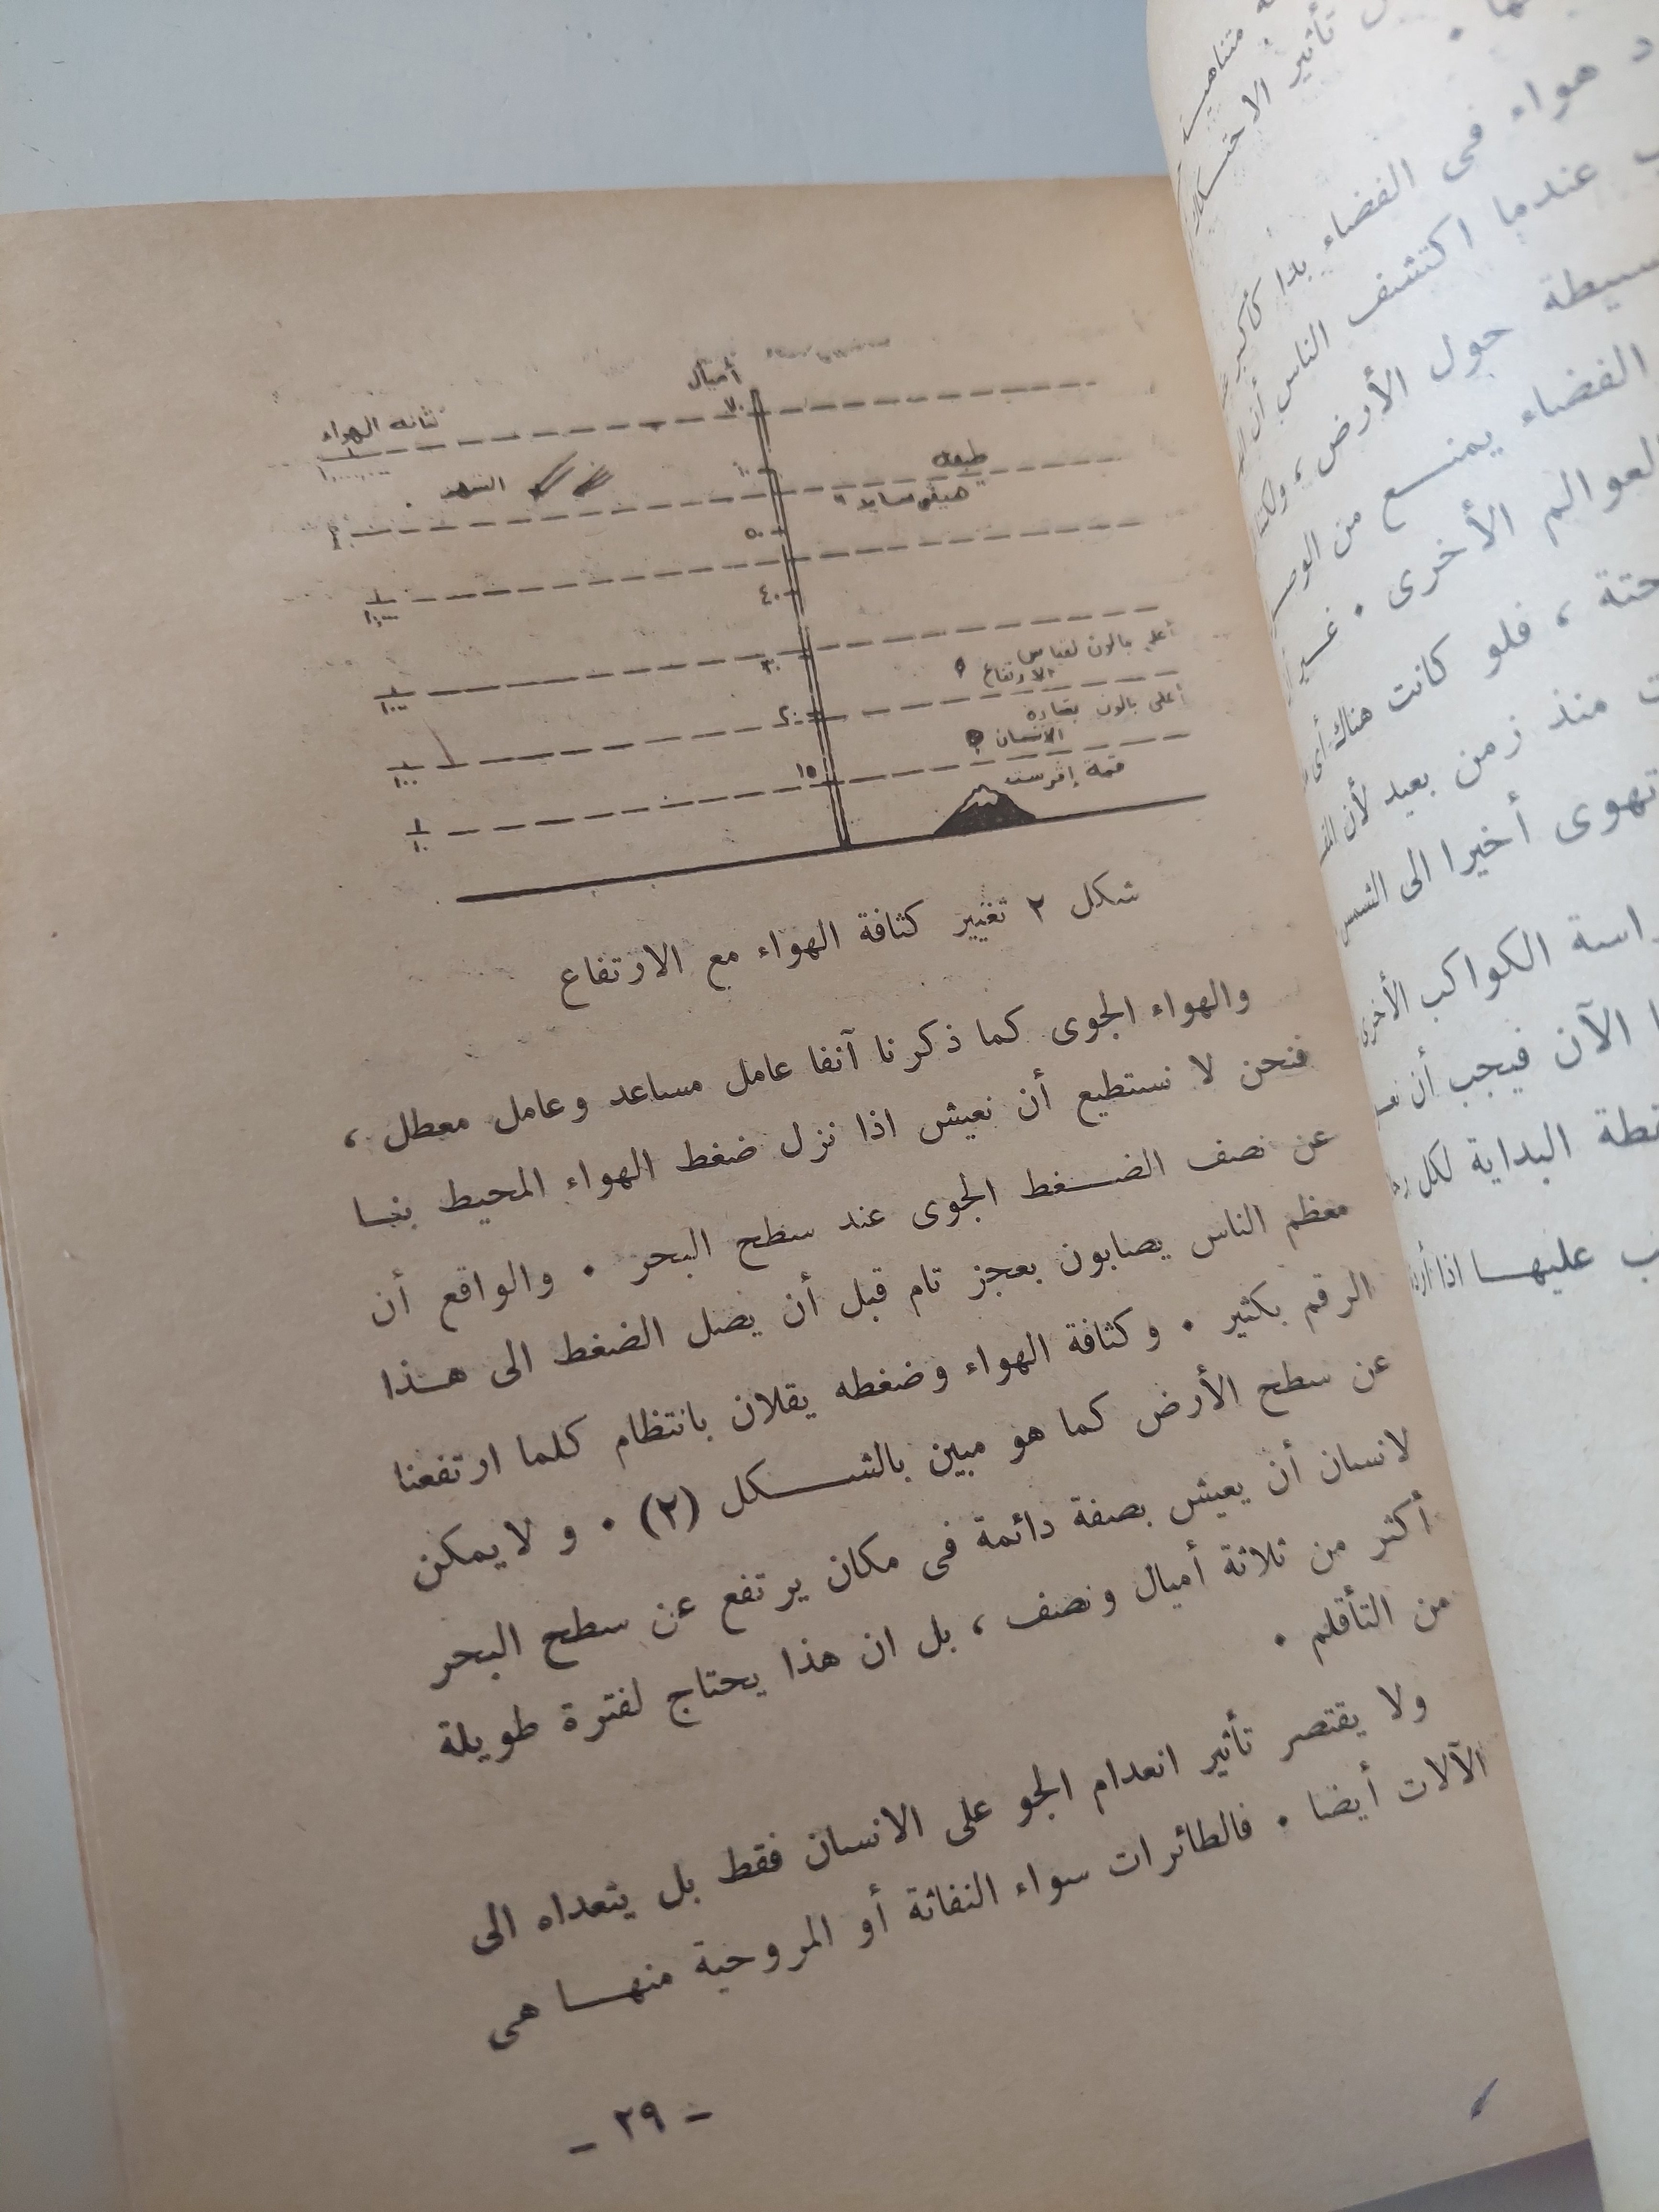 أميال
كثافة الهواء
٧٠
الشهب
٦٠
طبقة
"هيفى سايد"
٥٠
٤٠
أعلى بالون لقياس
الارتفاع
٣٠
أعلى بالون بقيادة
الانسان
٢٠
قمة إفرست
١٥
شكل ٢ تغيير كثافة الهواء مع الارتفاع
والهواء الجوى كما ذكرنا آنفا عامل مساعد وعامل معطل ،
فنحن لا نستطيع أن نعيش اذا نزل ضغط الهواء المحيط بنا
عن نصف الضغط الجوى عند سطح البحر . والواقع أن
معظم الناس يصابون بعجز تام قبل أن يصل الضغط الى هذا
الرقم بكثير . وكثافة الهواء وضغطه يقلان بانتظام كلما ارتفعنا
عن سطح الأرض كما هو مبين بالشكل (٢) . و لايمكن
لانسان أن يعيش بصفة دائمة فى مكان يرتفع عن سطح البحر
أكثر من ثلاثة أميال ونصف ، بل ان هذا يحتاج لفترة طويلة
من التأقلم .
ولا يقتصر تأثير انعدام الجو على الانسان فقط بل يتعداه الى
الآلات أيضا . فالطائرات سواء النفاثة أو المروحية منها هى
- ٢٩ -
تأثير الاحتكاك
هواء فى الفضاء بدا كأكبر
عندما اكتشف الناس أن
حول الأرض ، ولكن
الفضاء يمنع من
العوالم الأخرى . غير
فلو كانت هناك أى
منذ زمن بعيد لأن
تهوى أخيرا الى الشمس
الكواكب الأخرى
الآن فيجب أن
البداية لكل
عليها اذا